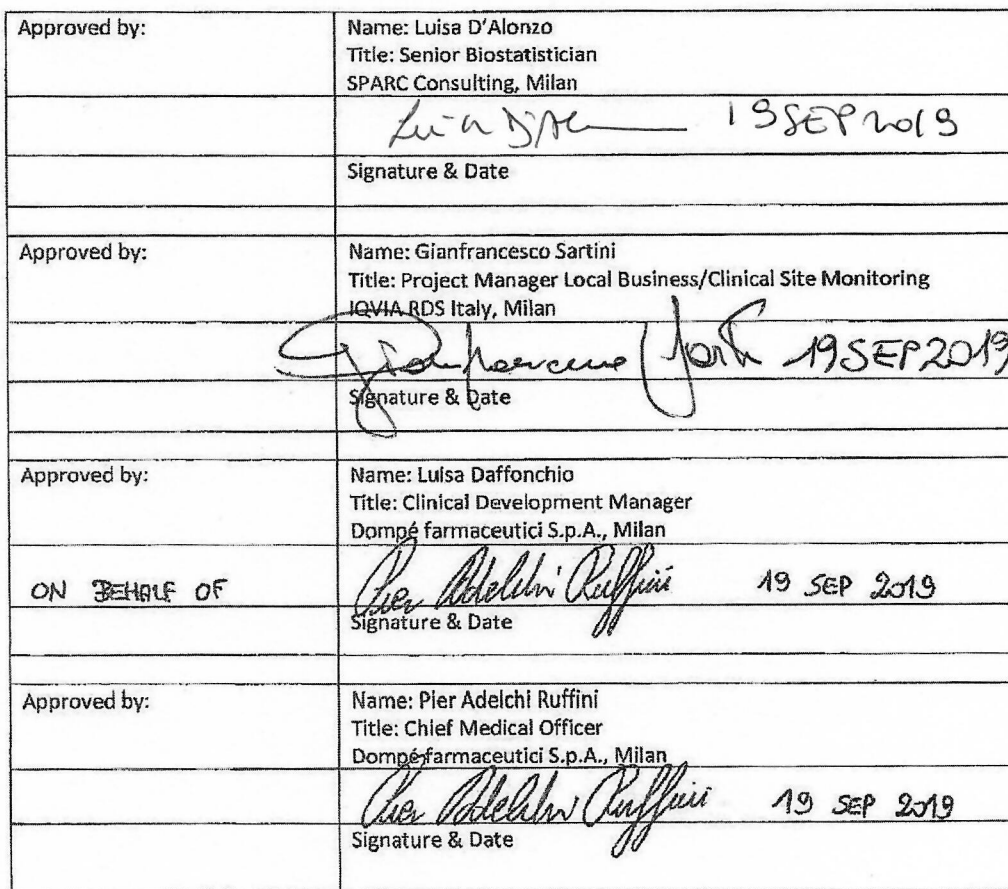 Approved by:
Name: Luisa D'Alonzo
Title: Senior Biostatistician
SPARC Consulting, Milan
19 SEP 2019
Signature & Date
Approved by:
Name: Gianfrancesco Sartini
Title: Project Manager Local Business/Clinical Site Monitoring
IQVIA RDS Italy, Milan
19 SEP 2019
Signature & Date
Approved by:
Name: Luisa Daffonchio
Title: Clinical Development Manager
Dompé farmaceutici S.p.A., Milan
ON BEHALF OF
Pier Adelchi Ruffini 19 SEP 2019
Signature & Date
Approved by:
Name: Pier Adelchi Ruffini
Title: Chief Medical Officer
Dompé farmaceutici S.p.A., Milan
Pier Adelchi Ruffini 19 SEP 2019
Signature & Date